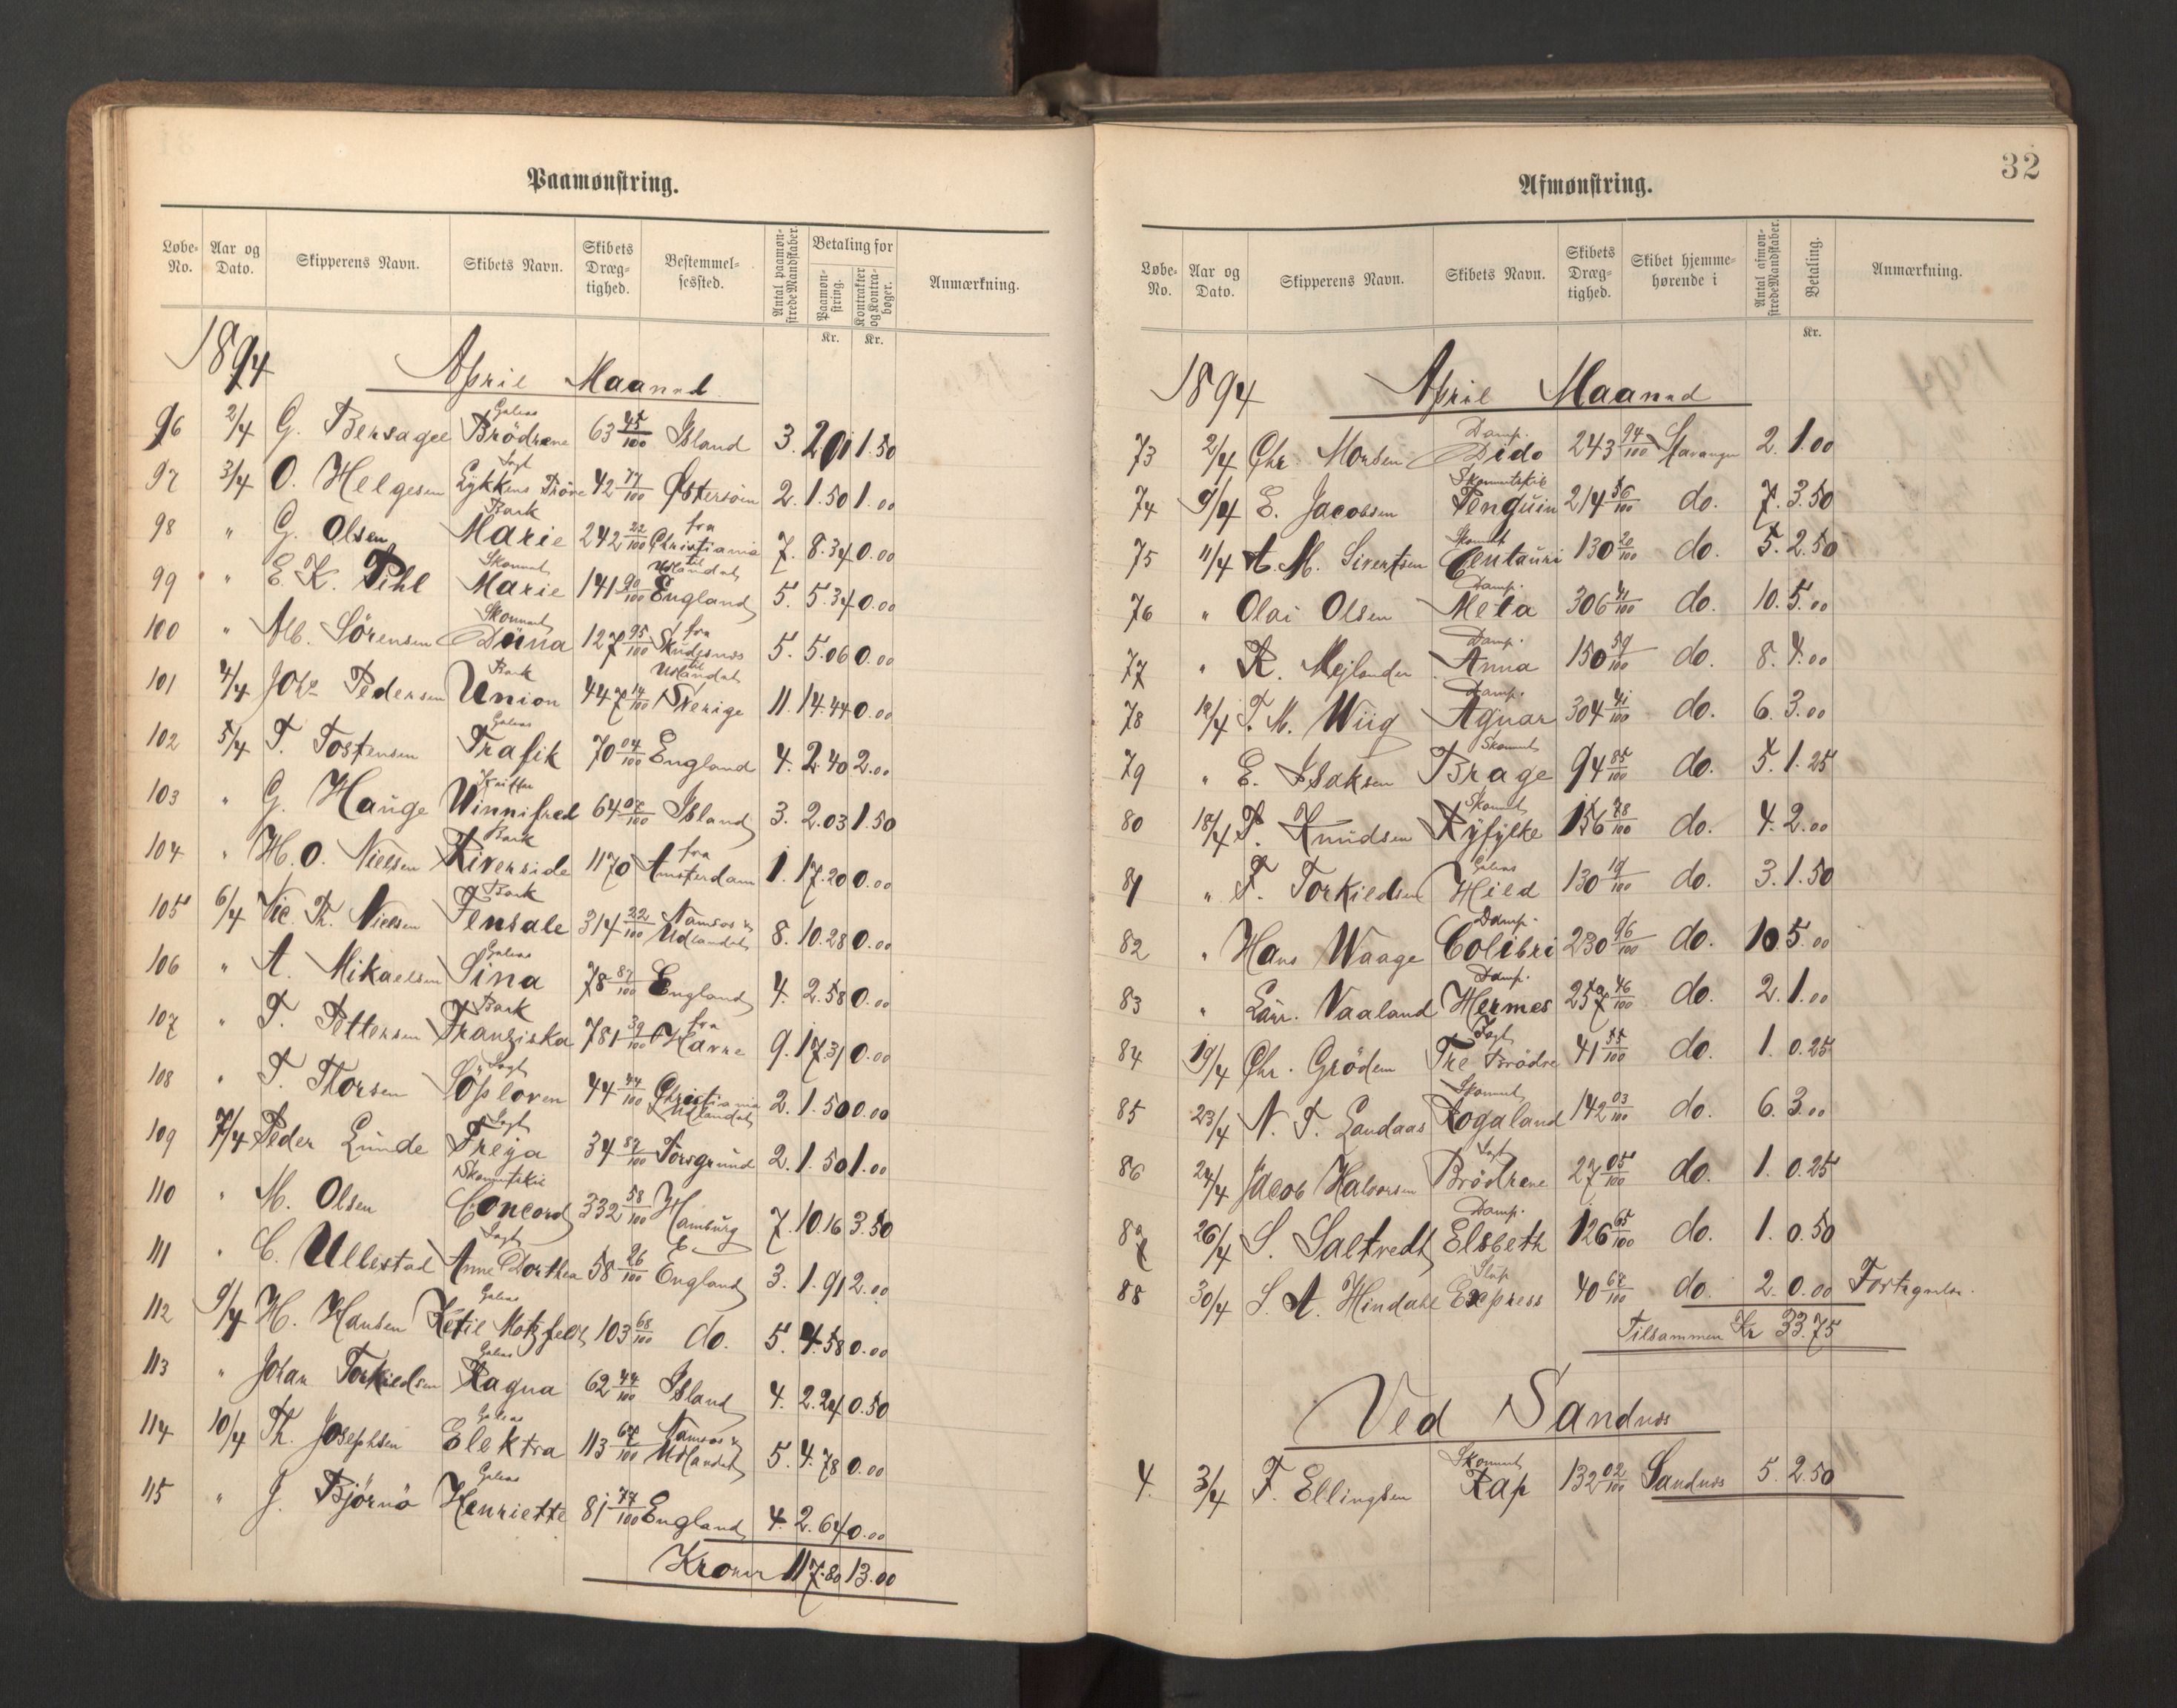 Paamønstring.
Løbe-No. Aar og Dato. Skipperens Navn. Skibets Navn. Skibets Dræg-tighed. Bestemmel-sessted. Antal paamøn-strede Mandskaber. Betaling for Paamøn-string. Kontrakter og Kontra-bøger. Anmærkning.
Kr. Kr.
1894 April Maaned
96 2/4 G. Bersagel Galeas Brödrene 63 45/100 Island 3. 2.01 1.50
97 3/4 O. Helgesen Jagt Lykkens Pröve 42 77/100 Østersöen 2. 1.50 1.00
98 " G. Olsen Bark Marie 242 22/100 fra Christiania til Udlandet 7. 8.34 0.00
99 " E. K. Pihl Skonnert Marie 141 90/100 England 5. 5.34 0.00
100 " Alb. Sörensen Skonnert Düna 127 95/100 fra Skudesnæs til Udlandet 5. 5.06 0.00
101 4/4 Johs Pedersen Bark Union 447 14/100 Sverige 11. 14.44 0.00
102 5/4 T. Tostensen Galeas Trafik 70 04/100 England 4. 2.40 2.00
103 " G. Hauge Winnifred 64 07/100 Island 3. 2.03 1.50
104 " H. O. Nielsen Bark Riverside 1170 fra Amsterdam 1. 17.20 0.00
105 6/4 Nic. Th. Nielsen Bark Fensale 314 22/100 Namsos & Udlandet 8. 10.28 0.00
106 " A. Mikaelsen Galeas Sina 78 87/100 England 4. 2.58 0.00
107 " T. Pettersen Bark Franziska 781 39/100 fra Havre 9. 17.31 0.00
108 " T. Thorsen Jagt Söploven 44 44/100 Christiania & Udlandet 2. 1.50 0.00
109 7/4 Peder Lunde Jagt Freya 34 87/100 Porsgrund 2. 1.50 1.00
110 " M. Olsen Skonnertskib Concord 332 58/100 Hamburg 7. 10.16 3.50
111 " C. Ullestad Jagt Anne Dorthea 58 26/100 England 3. 1.91 2.00
112 9/4 H. Hansen Galeas Ketil Motzfeldt 103 68/100 do. 5. 4.58 0.00
113 " Johan Torkildsen Galeas Ragna 62 44/100 Island 4. 2.24 0.50
114 10/4 Th. Josephsen Galeas Elektra 113 67/100 Namsos & Udlandet 5. 4.78 0.00
115 " J. Björnö Galeas Henriette 81 77/100 England 4. 2.64 0.00
Kroner 117.80 13.00
32
Afmønstring.
Løbe-No. Aar og Dato. Skipperens Navn. Skibets Navn. Skibets Dræg-tighed. Skibet hjemme-hørende i Antal afmøn-strede Mandskaber. Betaling. Anmærkning.
Kr.
1894 April Maaned
73 2/4 Chr. Monsen Damp. Dido 243 94/100 Stavanger 2. 1.00
74 9/4 E. Jacobsen Skonnertskib Penguin 214 56/100 do. 7. 3.50
75 11/4 A. M. Sivertsen Skonnert Centauri 130 20/100 do. 5. 2.50
76 " Olai Olsen Damp. Meta 306 41/100 do. 10. 5.00
77 " R. Mejlænder Damp. Anna 150 59/100 do. 8. 4.00
78 12/4 T. M. Wiig Damp. Aguar 304 41/100 do. 6. 3.00
79 " E. Isaksen Skonnert Brage 94 85/100 do. 5. 1.25
80 18/4 T. Knudsen Skonnert Ryfylke 156 78/100 do. 4. 2.00
81 " T. Torkildsen Galeas Hild 130 19/100 do. 3. 1.50
82 " Hans Waage Damp. Colibri 230 96/100 do. 10 5.00
83 " Laur. Vaaland Damp. Hermes 257 46/100 do. 2. 1.00
84 19/4 Chr. Grödem Jagt Tre Brödre 41 55/100 do. 1. 0.25
85 23/4 N. T. Landaas Skonnert Rogaland 142 03/100 do. 6. 3.00
86 24/4 Jacob Halvorsen Jagt Brödrene 27 05/100 do. 1. 0.25
87 26/4 S. Saltvedt Damp. Elsbeth 126 65/100 do. 1. 0.50
88 30/4 S. A. Hindahl Slup Express 40 67/100 do. 2. 0.00
Tilsammen Kr 33.75
Ved Sandnæs
4. 3/4 F. Ellingsen Skonnert Rap 132 02/100 Sandnæs 5. 2.50